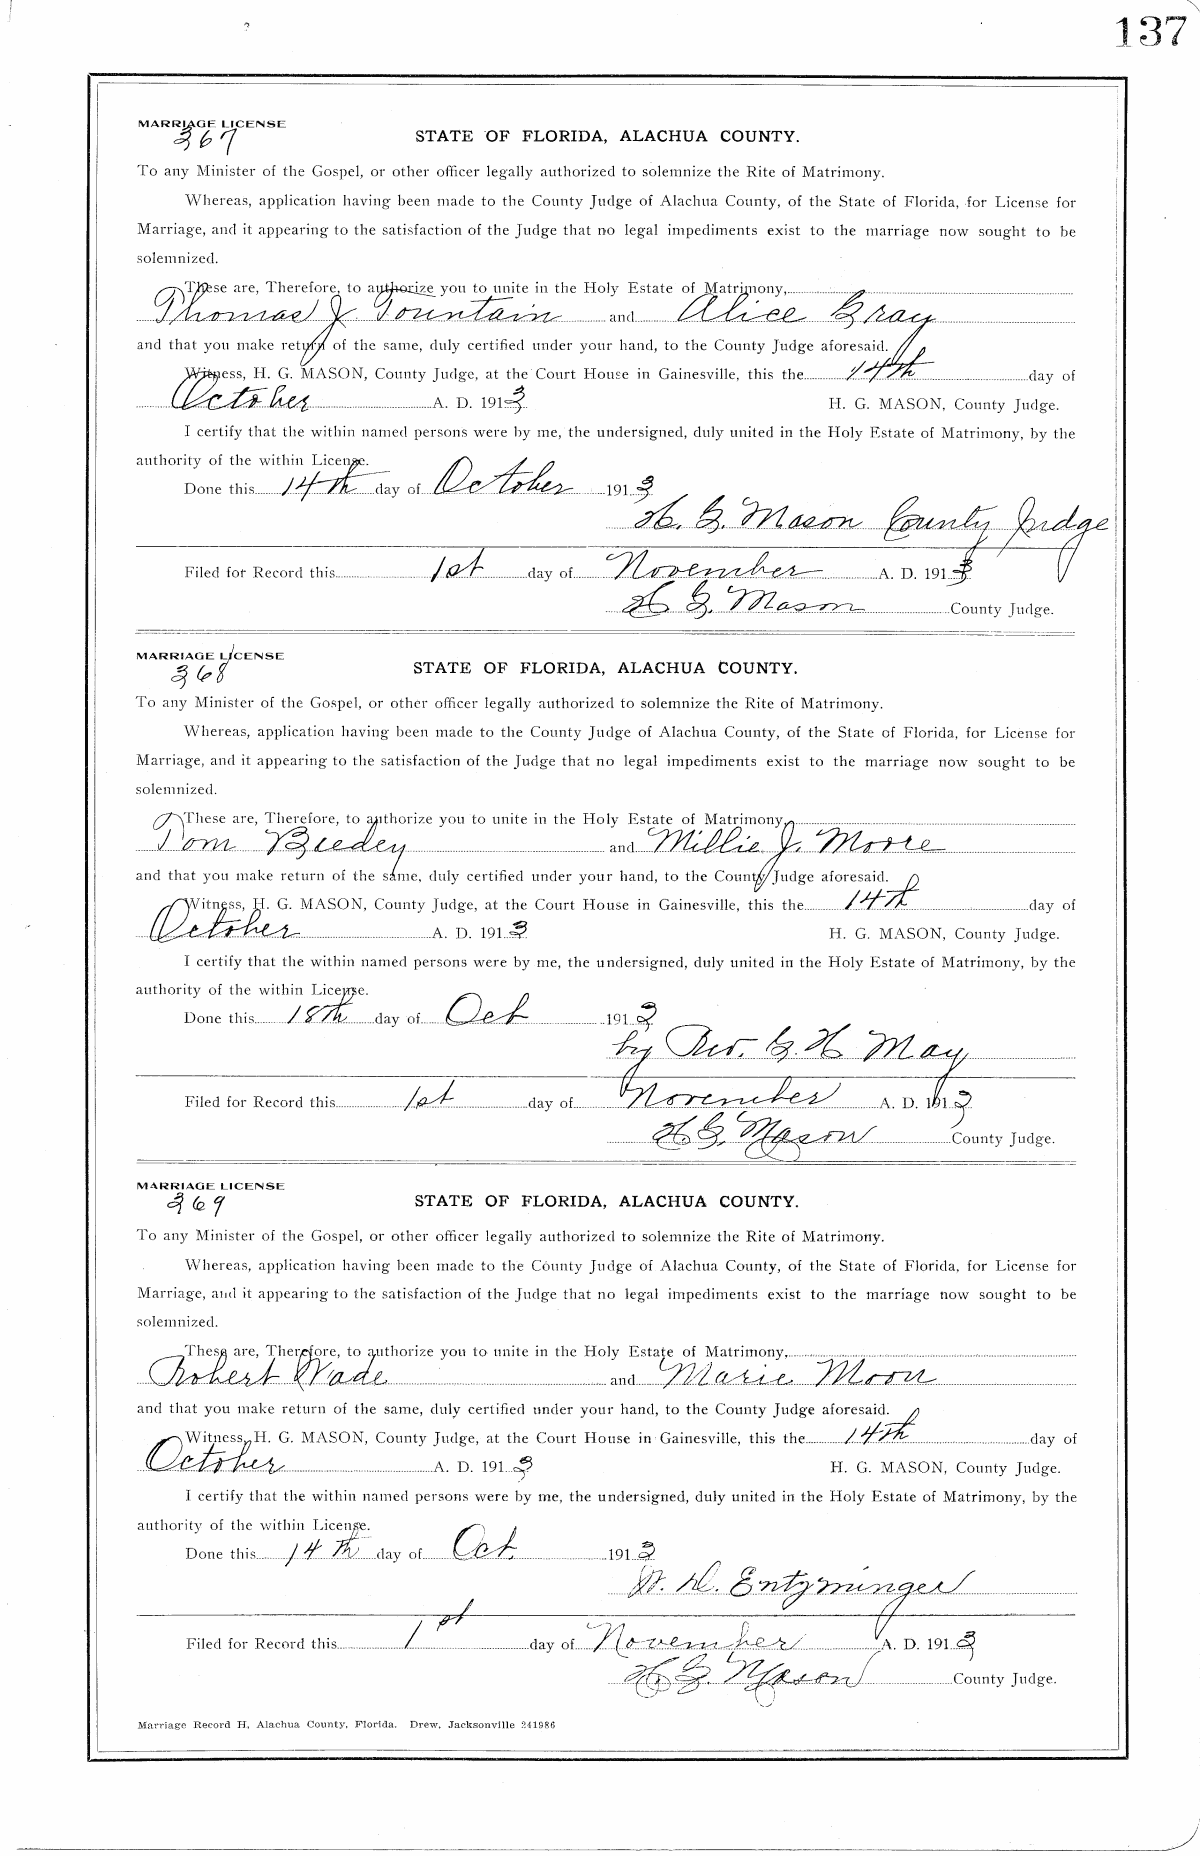 137
MARRIAGE LICENSE
367
STATE OF FLORIDA, ALACHUA COUNTY.
To any Minister of the Gospel, or other officer legally authorized to solemnize the Rite of Matrimony.
Whereas, application having been made to the County Judge of Alachua County, of the State of Florida, for License for
Marriage, and it appearing to the satisfaction of the Judge that no legal impediments exist to the marriage now sought to be
solemnized.
These are, Therefore, to authorize you to unite in the Holy Estate of Matrimony,
Thomas J. Fountain and Alice Gray
and that you make return of the same, duly certified under your hand, to the County Judge aforesaid.
Witness, H. G. MASON, County Judge, at the Court House in Gainesville, this the 14th day of
October A. D. 1913 H. G. MASON, County Judge.
I certify that the within named persons were by me, the undersigned, duly united in the Holy Estate of Matrimony, by the
authority of the within License.
Done this 14th day of October 1913
H. G. Mason County Judge
Filed for Record this 1st day of November A. D. 1913
H G. Mason County Judge.
MARRIAGE LICENSE
368
STATE OF FLORIDA, ALACHUA COUNTY.
To any Minister of the Gospel, or other officer legally authorized to solemnize the Rite of Matrimony.
Whereas, application having been made to the County Judge of Alachua County, of the State of Florida, for License for
Marriage, and it appearing to the satisfaction of the Judge that no legal impediments exist to the marriage now sought to be
solemnized.
These are, Therefore, to authorize you to unite in the Holy Estate of Matrimony,
Tom and Millie J. Moore
and that you make return of the same, duly certified under your hand, to the County Judge aforesaid.
Witness, H. G. MASON, County Judge, at the Court House in Gainesville, this the 14th day of
October A. D. 1913 H. G. MASON, County Judge.
I certify that the within named persons were by me, the undersigned, duly united in the Holy Estate of Matrimony, by the
authority of the within License.
Done this 18th day of Oct 1913
by Rev. G. H May
Filed for Record this 1st day of November A. D. 1913
H G. Mason County Judge.
MARRIAGE LICENSE
369
STATE OF FLORIDA, ALACHUA COUNTY.
To any Minister of the Gospel, or other officer legally authorized to solemnize the Rite of Matrimony.
Whereas, application having been made to the County Judge of Alachua County, of the State of Florida, for License for
Marriage, and it appearing to the satisfaction of the Judge that no legal impediments exist to the marriage now sought to be
solemnized.
These are, Therefore, to authorize you to unite in the Holy Estate of Matrimony,
Robert Wade and Marie Moon
and that you make return of the same, duly certified under your hand, to the County Judge aforesaid.
Witness, H. G. MASON, County Judge, at the Court House in Gainesville, this the 14th day of
October A. D. 1913 H. G. MASON, County Judge.
I certify that the within named persons were by me, the undersigned, duly united in the Holy Estate of Matrimony, by the
authority of the within License.
Done this 14th day of Oct. 1913
W. D. Entzminger
Filed for Record this 1st day of November A. D. 1913
H. G. Mason County Judge.
Marriage Record H, Alachua County, Florida. Drew, Jacksonville 241986